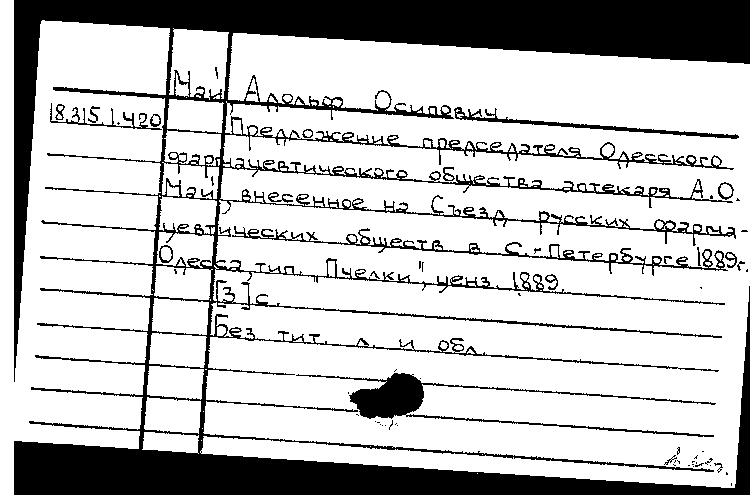 Май, Адольф Осипович.
18.315.1.420
Предложение председателя Одесского
фармацевтического общества аптекаря А.О.
Май, внесенное на Съезд русских фарма-
цевтических обществ в С.-Петербурге 1889г.
Одесса, тип. "Пчелки", ценз. 1889.
[3] с.
Без тит. л. и обл.